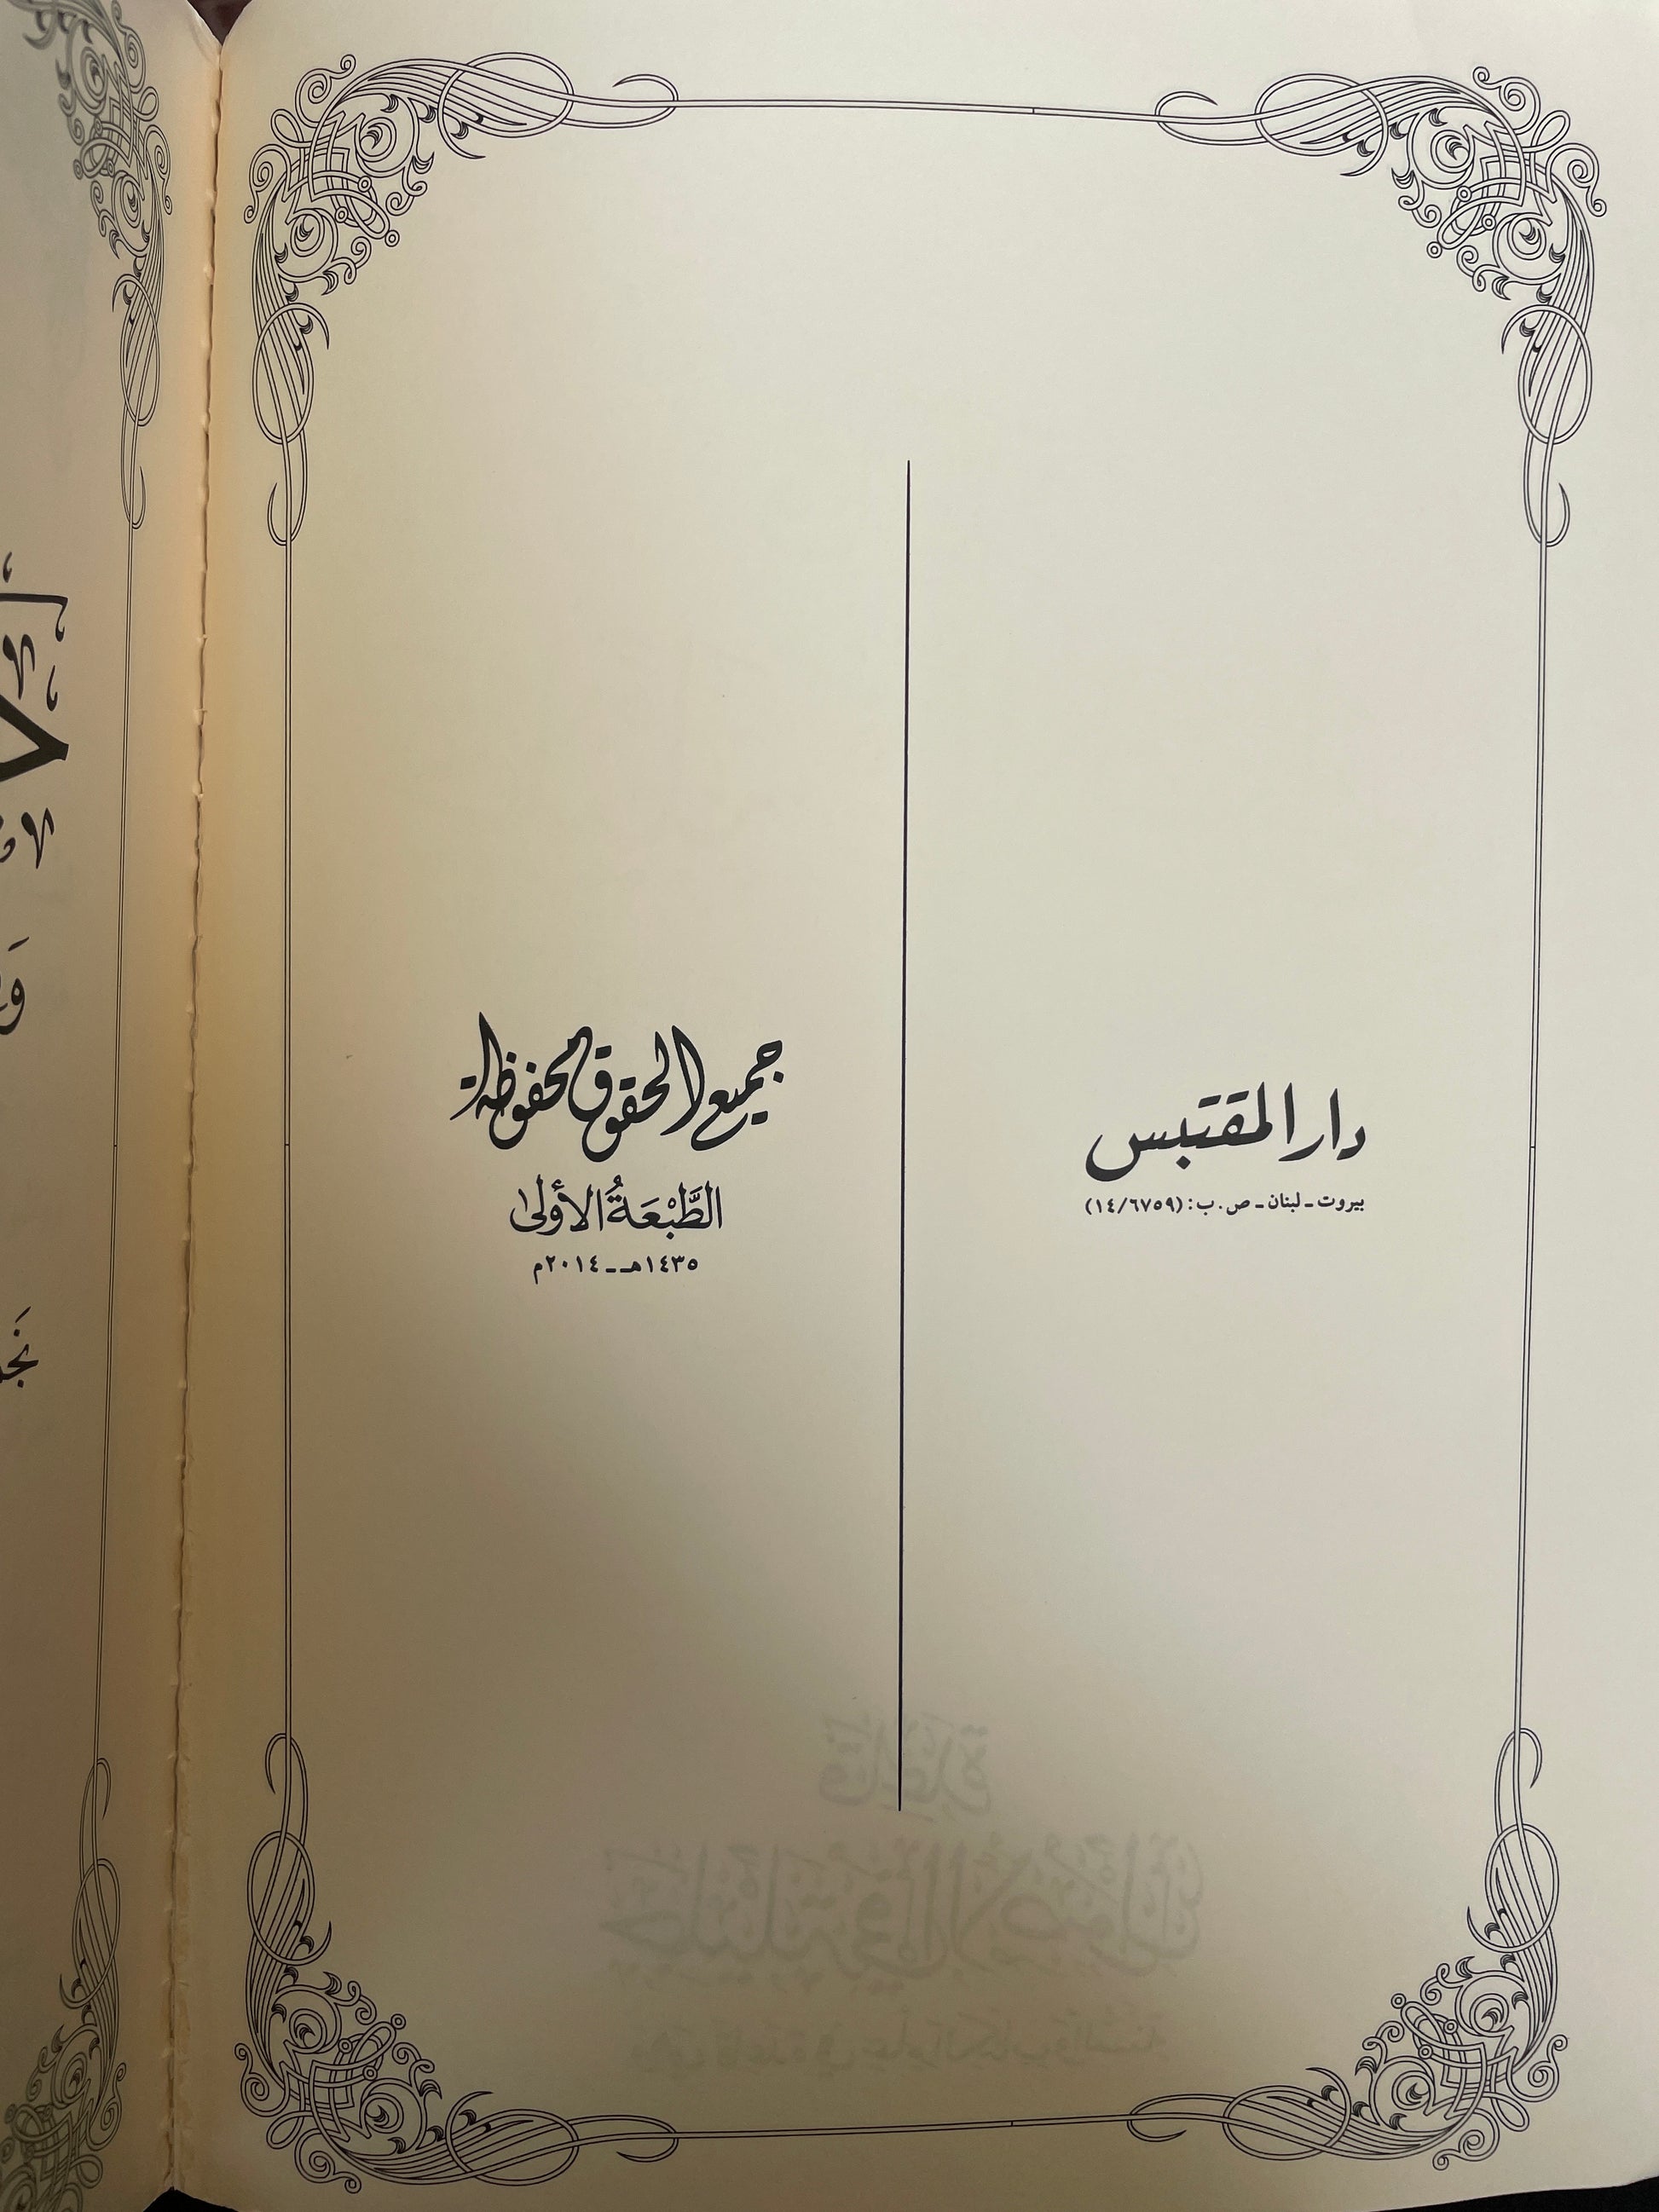 دار المقتبس
بيروت ـ لبنان ـ ص.ب: (١٤/٦٧٥٩)
جميع الحقوق محفوظة
الطَّبْعَةُ الأولى
١٤٣٥هـ ـ ٢٠١٤م